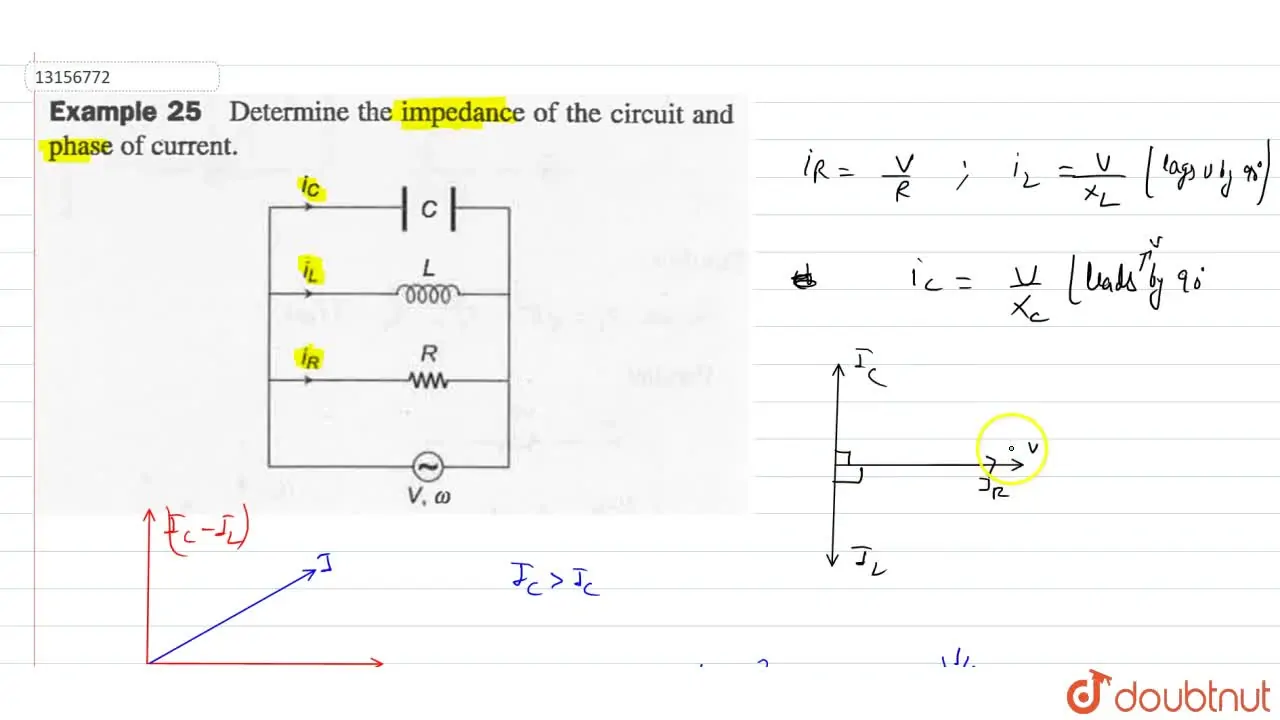 13156772
Example 25 Determine the impedance of the circuit and
phase of current.
iC
C
iL
L
iR
R
V, ω
iR = V/R ; iL = V/XL (lags v by 90°)
iC = V/XC (leads v by 90°
IC
V
IR
IL
(IC - IL)
I
IC > IC
doubtnut